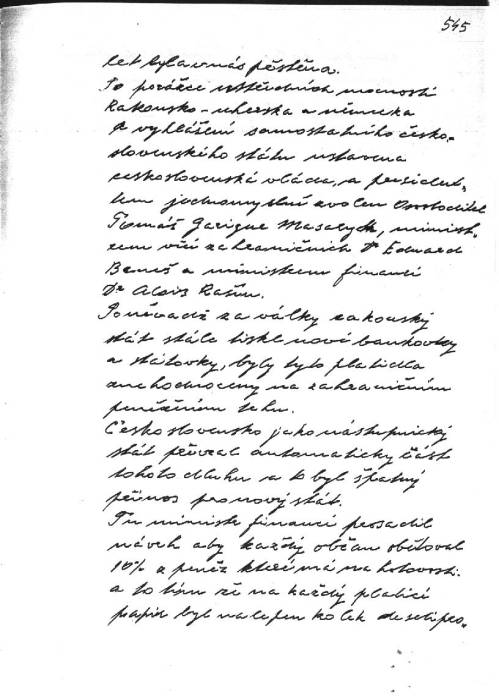 545
let byla u nás pěstěna.
Po porážce ústředních mocností
Rakousko-uherska a německa
a vyhlášení samostatního česko-
slovenského státu ustavena
československá vláda, a presiden-
tem jednomyslně zvolen Osvoboditel
Tomáš Garigue Masaryk, minist-
rem věcí zahraničních Dr Eduard
Beneš a ministrem financí
Dr Alois Rašín.
Poněvadž za války rakouský
stát stále tiskl nové bankovky
a státovky, byly tyto platidla
znehodnoceny na zahraničním
peněžním trhu.
Československo jako nástupnický
stát převzal automaticky část
tohoto dluhu a to byl špatný
přínos pro nový stát.
Tu ministr financí prosadil
návrh aby každý občan obětoval
10% z peněz které má na hotovosti.
a to tím že na každý platící
papír byl nalepen kolek desetipro-